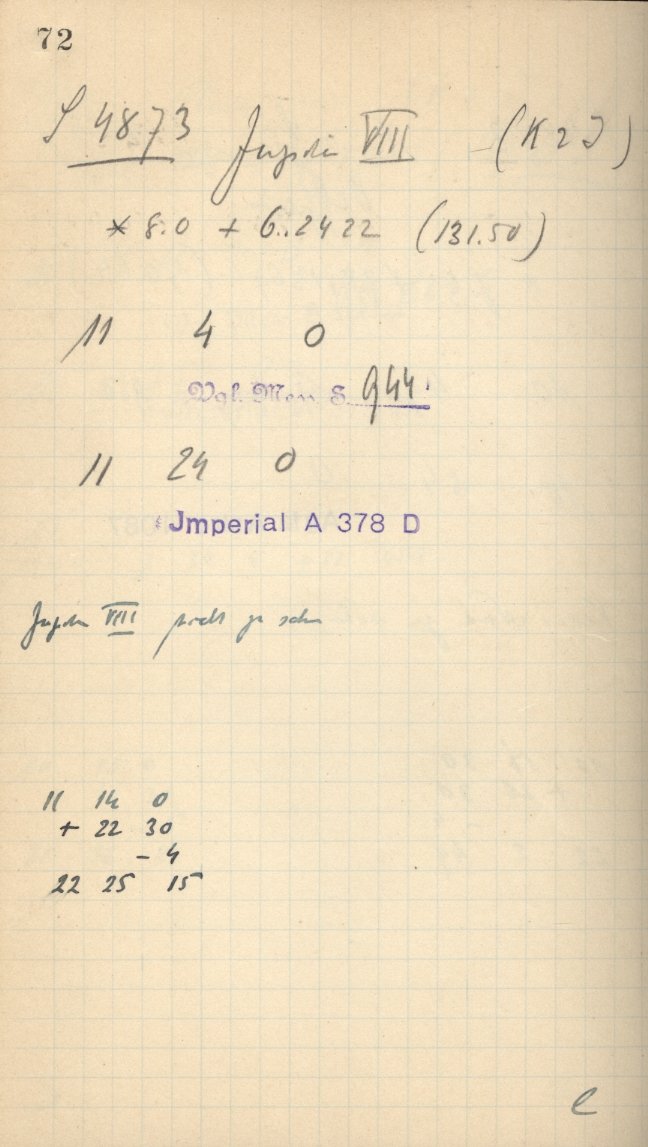 72
S 4873 Jupiter VIII (K 2 J)
* 8.0 + 6..2422 (131.50)
11 4 0
Vgl. Men S. 944.
11 24 0
Jmperial A 378 D
Jupiter VIII nicht zu sehen
11 14 0
+ 22 30
- 4
22 25 15